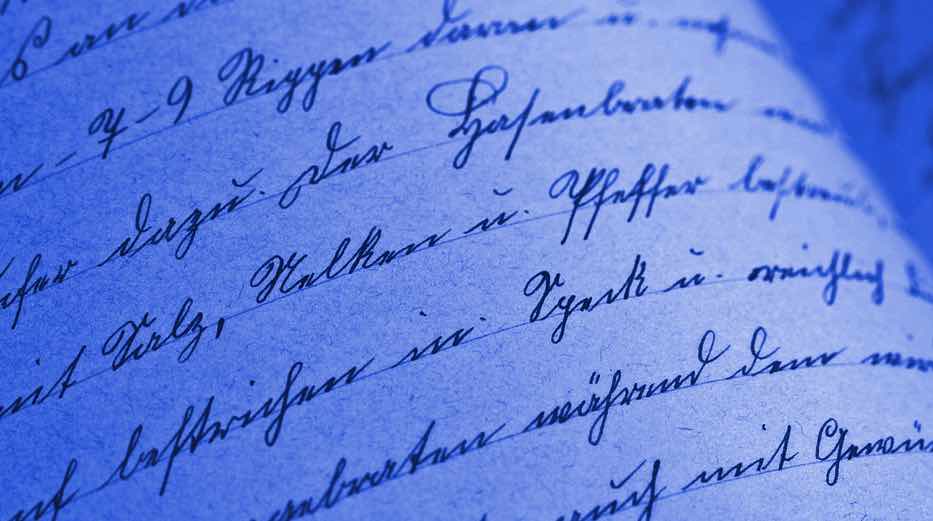 7-9 Rippen daran u.
dazu. Der Hasenbraten
mit Salz, Nelken u. Pfeffer bestreut
bestrichen in Speck u. reichlich
gebraten während dem
auch mit Gewü